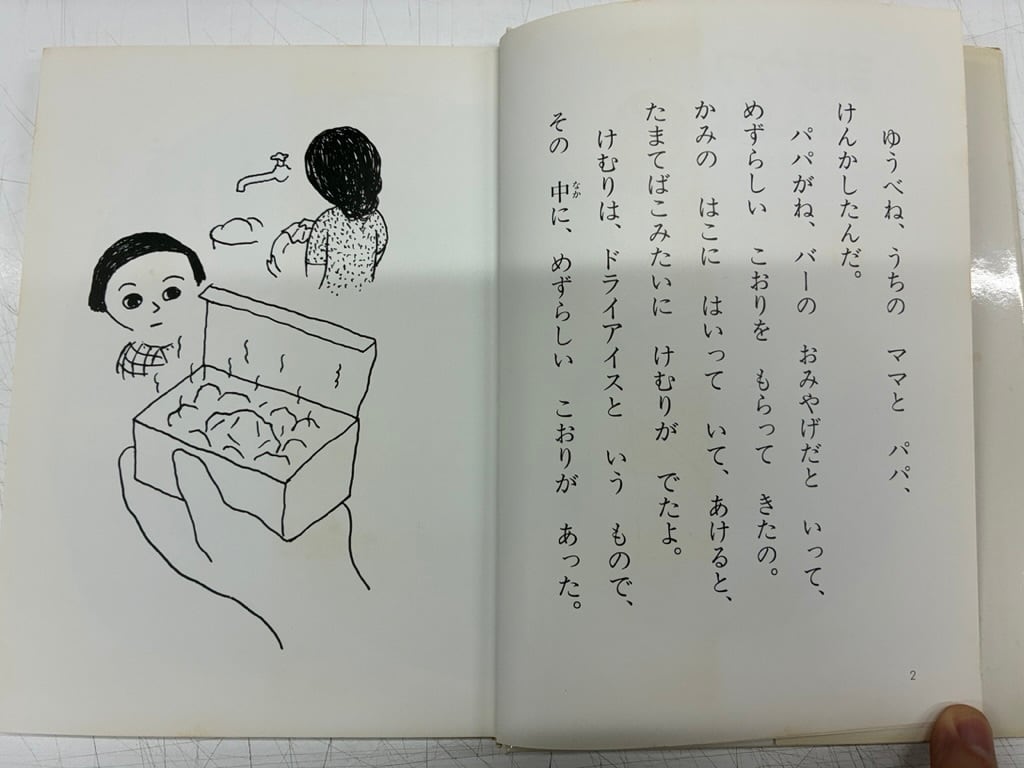 ゆうべね、うちの ママと パパ、
けんかしたんだ。
パパがね、バーの おみやげだと いって、
めずらしい こおりを もらって きたの。
かみの はこに はいって いて、あけると、
たまてばこみたいに けむりが でたよ。
けむりは、ドライアイスと いう もので、
その 中に、めずらしい こおりが あった。
なか
2